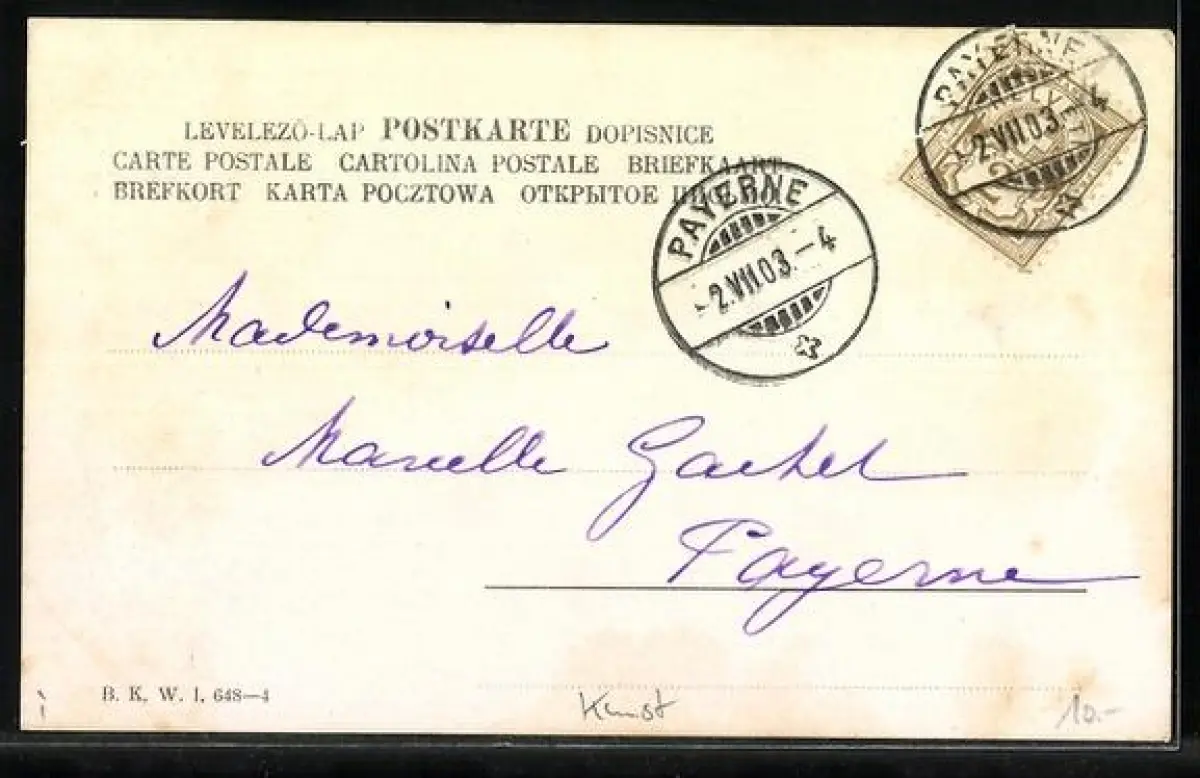 LEVELEZŐ-LAP POSTKARTE DOPISNICE
CARTE POSTALE CARTOLINA POSTALE BRIEFKAART
BREFKORT KARTA POCZTOWA ОТКРЫТОЕ
PAYERNE
2.VII.03.–4
PAYERNE
2.VII.03 4
Mademoiselle
Marcelle
Payerne
B. K. W. I. 648–4
Kunst
10.–